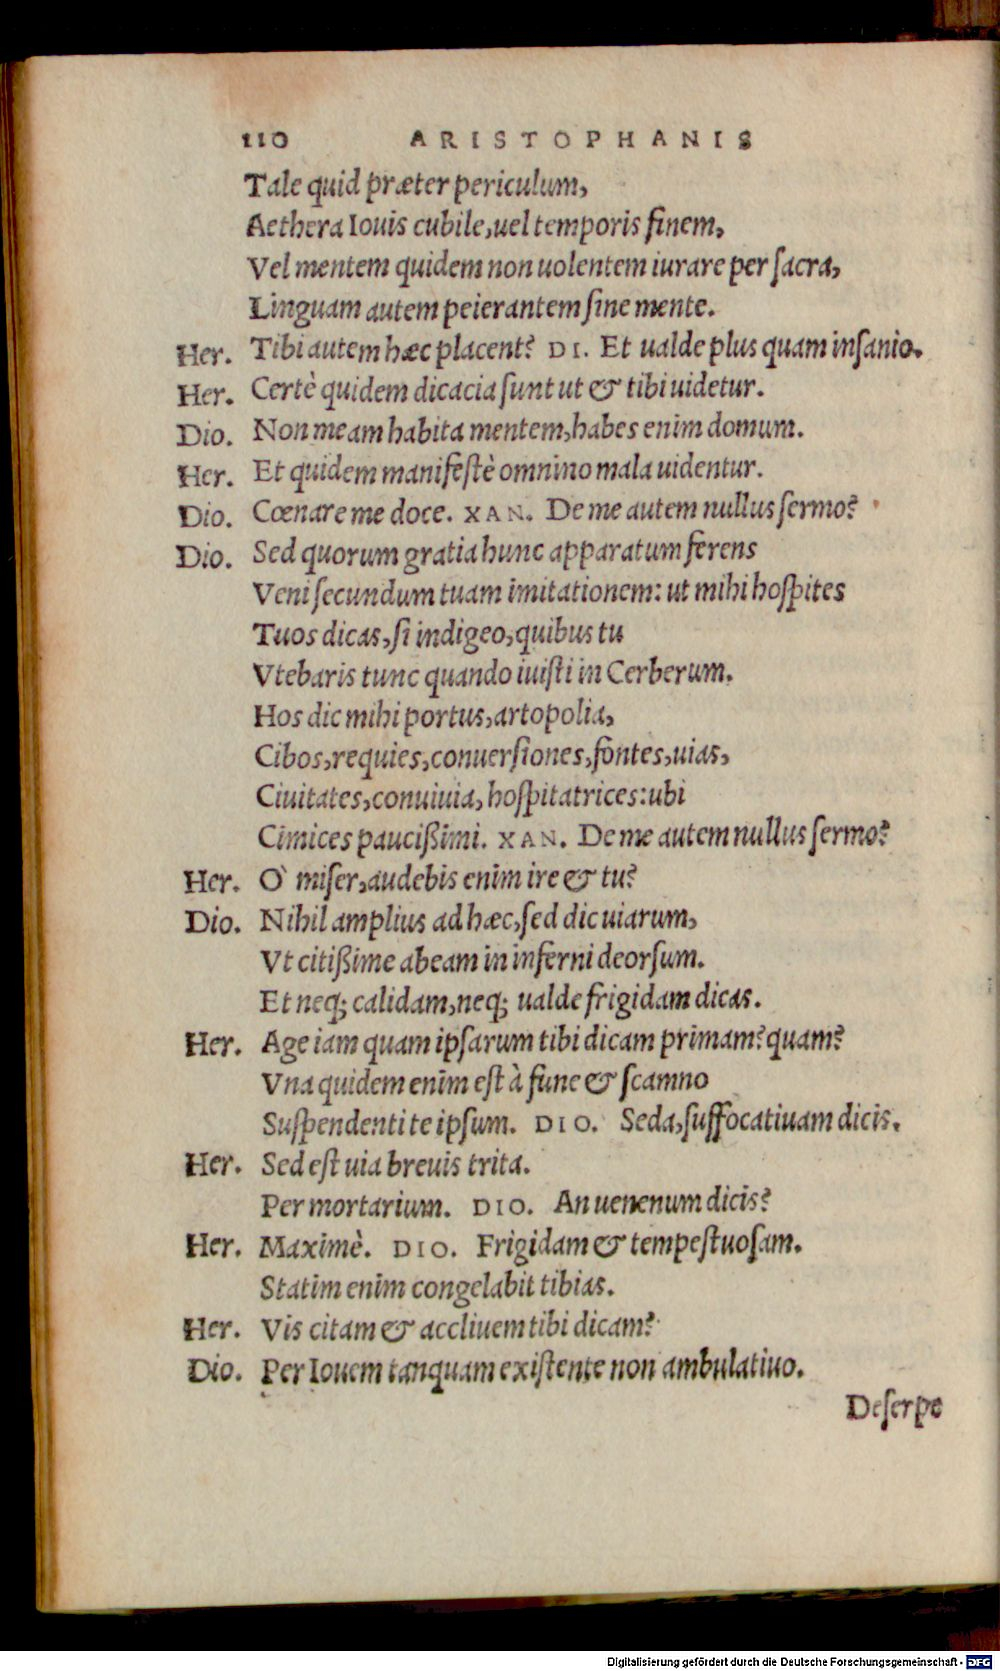 110 ARISTOPHANIS
Tale quid præter periculum,
Aethera Iouis cubile, uel temporis finem,
Vel mentem quidem non uolentem iurare per ſacra,
Linguam autem peierantem ſine mente.
Her. Tibi autem hæc placent? DI. Et ualde plus quam inſanio.
Her. Certè quidem dicacia ſunt ut & tibi uidetur.
Dio. Non meam habita mentem, habes enim domum.
Her. Et quidem manifeſtè omnino mala uidentur.
Dio. Cœnare me doce. XAN. De me autem nullus ſermo?
Dio. Sed quorum gratia hunc apparatum ferens
Veni ſecundum tuam imitationem: ut mihi hoſpites
Tuos dicas, ſi indigeo, quibus tu
Vtebaris tunc quando iuiſti in Cerberum.
Hos dic mihi portus, artopolia,
Cibos, requies, conuerſiones, fontes, uias,
Ciuitates, conuiuia, hoſpitatrices: ubi
Cimices paucißimi. XAN. De me autem nullus ſermo?
Her. O` miſer, audebis enim ire & tu?
Dio. Nihil amplius ad hæc, ſed dic uiarum,
Vt citißime abeam in inferni deorſum.
Et neq; calidam, neq; ualde frigidam dicas.
Her. Age iam quam ipſarum tibi dicam primam? quam?
Vna quidem enim eſt à fune & ſcamno
Suſpendenti te ipſum. DIO. Seda, ſuffocatiuam dicis.
Her. Sed eſt uia breuis trita.
Per mortarium. DIO. An uenenum dicis?
Her. Maximè. DIO. Frigidam & tempeſtuoſam.
Statim enim congelabit tibias.
Her. Vis citam & accliuem tibi dicam?
Dio. Per Iouem tanquam exiſtente non ambulatiuo.
Deſerpe
Digitalisierung gefördert durch die Deutsche Forschungsgemeinschaft - DFG